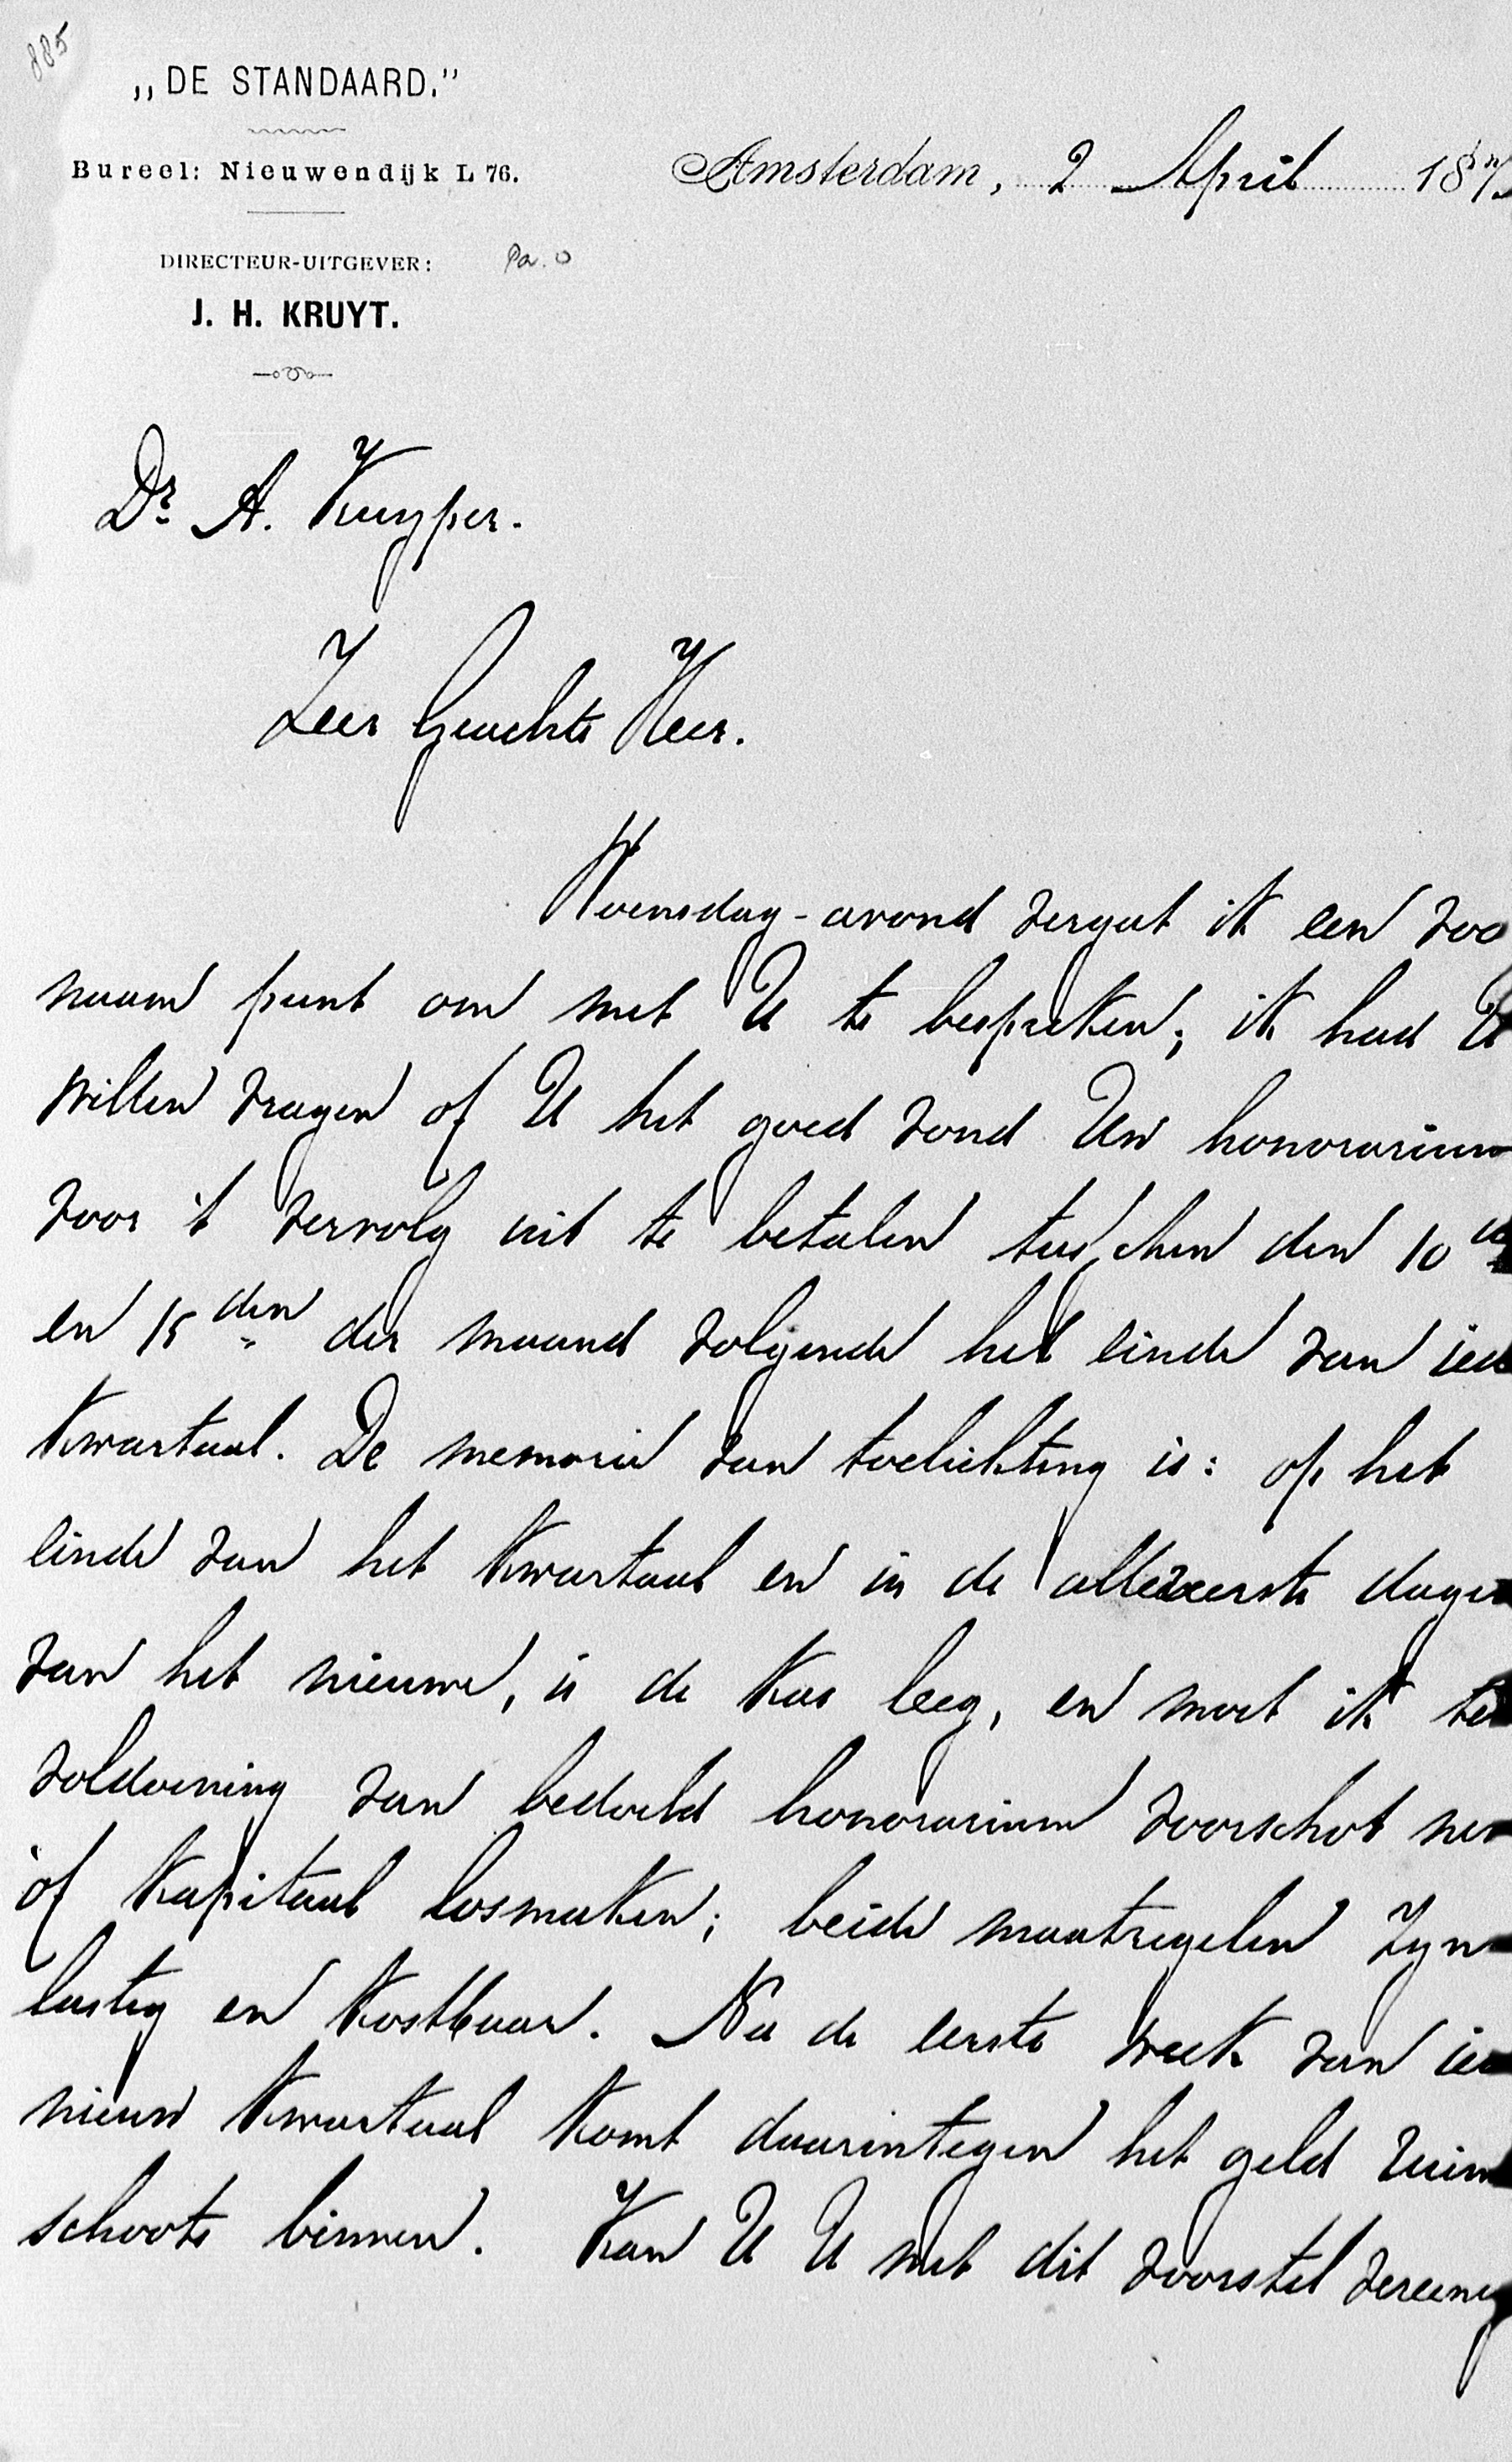 885
„DE STANDAARD.”
Bureel: Nieuwendijk L 76.
Amsterdam, 2 April 187
DIRECTEUR-UITGEVER:
J. H. KRUYT.
Dr. A. Kuyper.
Zeer Geachte Heer.
Woensdag-avond vergat ik een voor
naam punt om met U te bespreken; ik had U
willen vragen of U het goed vond Uw honorarium
voor 't vervolg uit te betalen tusschen den 10
en 15den der maand volgende het einde van ied
kwartaal. De memorie van toelichting is: op het
einde van het kwartaal en in de allereerste dagen
van het nieuwe, is de kas leeg, en moet ik te
voldoening van bedoeld honorarium voorschot ne
òf kapitaal losmaken; beide maatregelen zyn
lastig en kostbaar. Na de eerste week van ie
nieuw kwartaal komt daarintegen het geld ruim
schoots binnen. Kan U U met dit voorstel vereenig